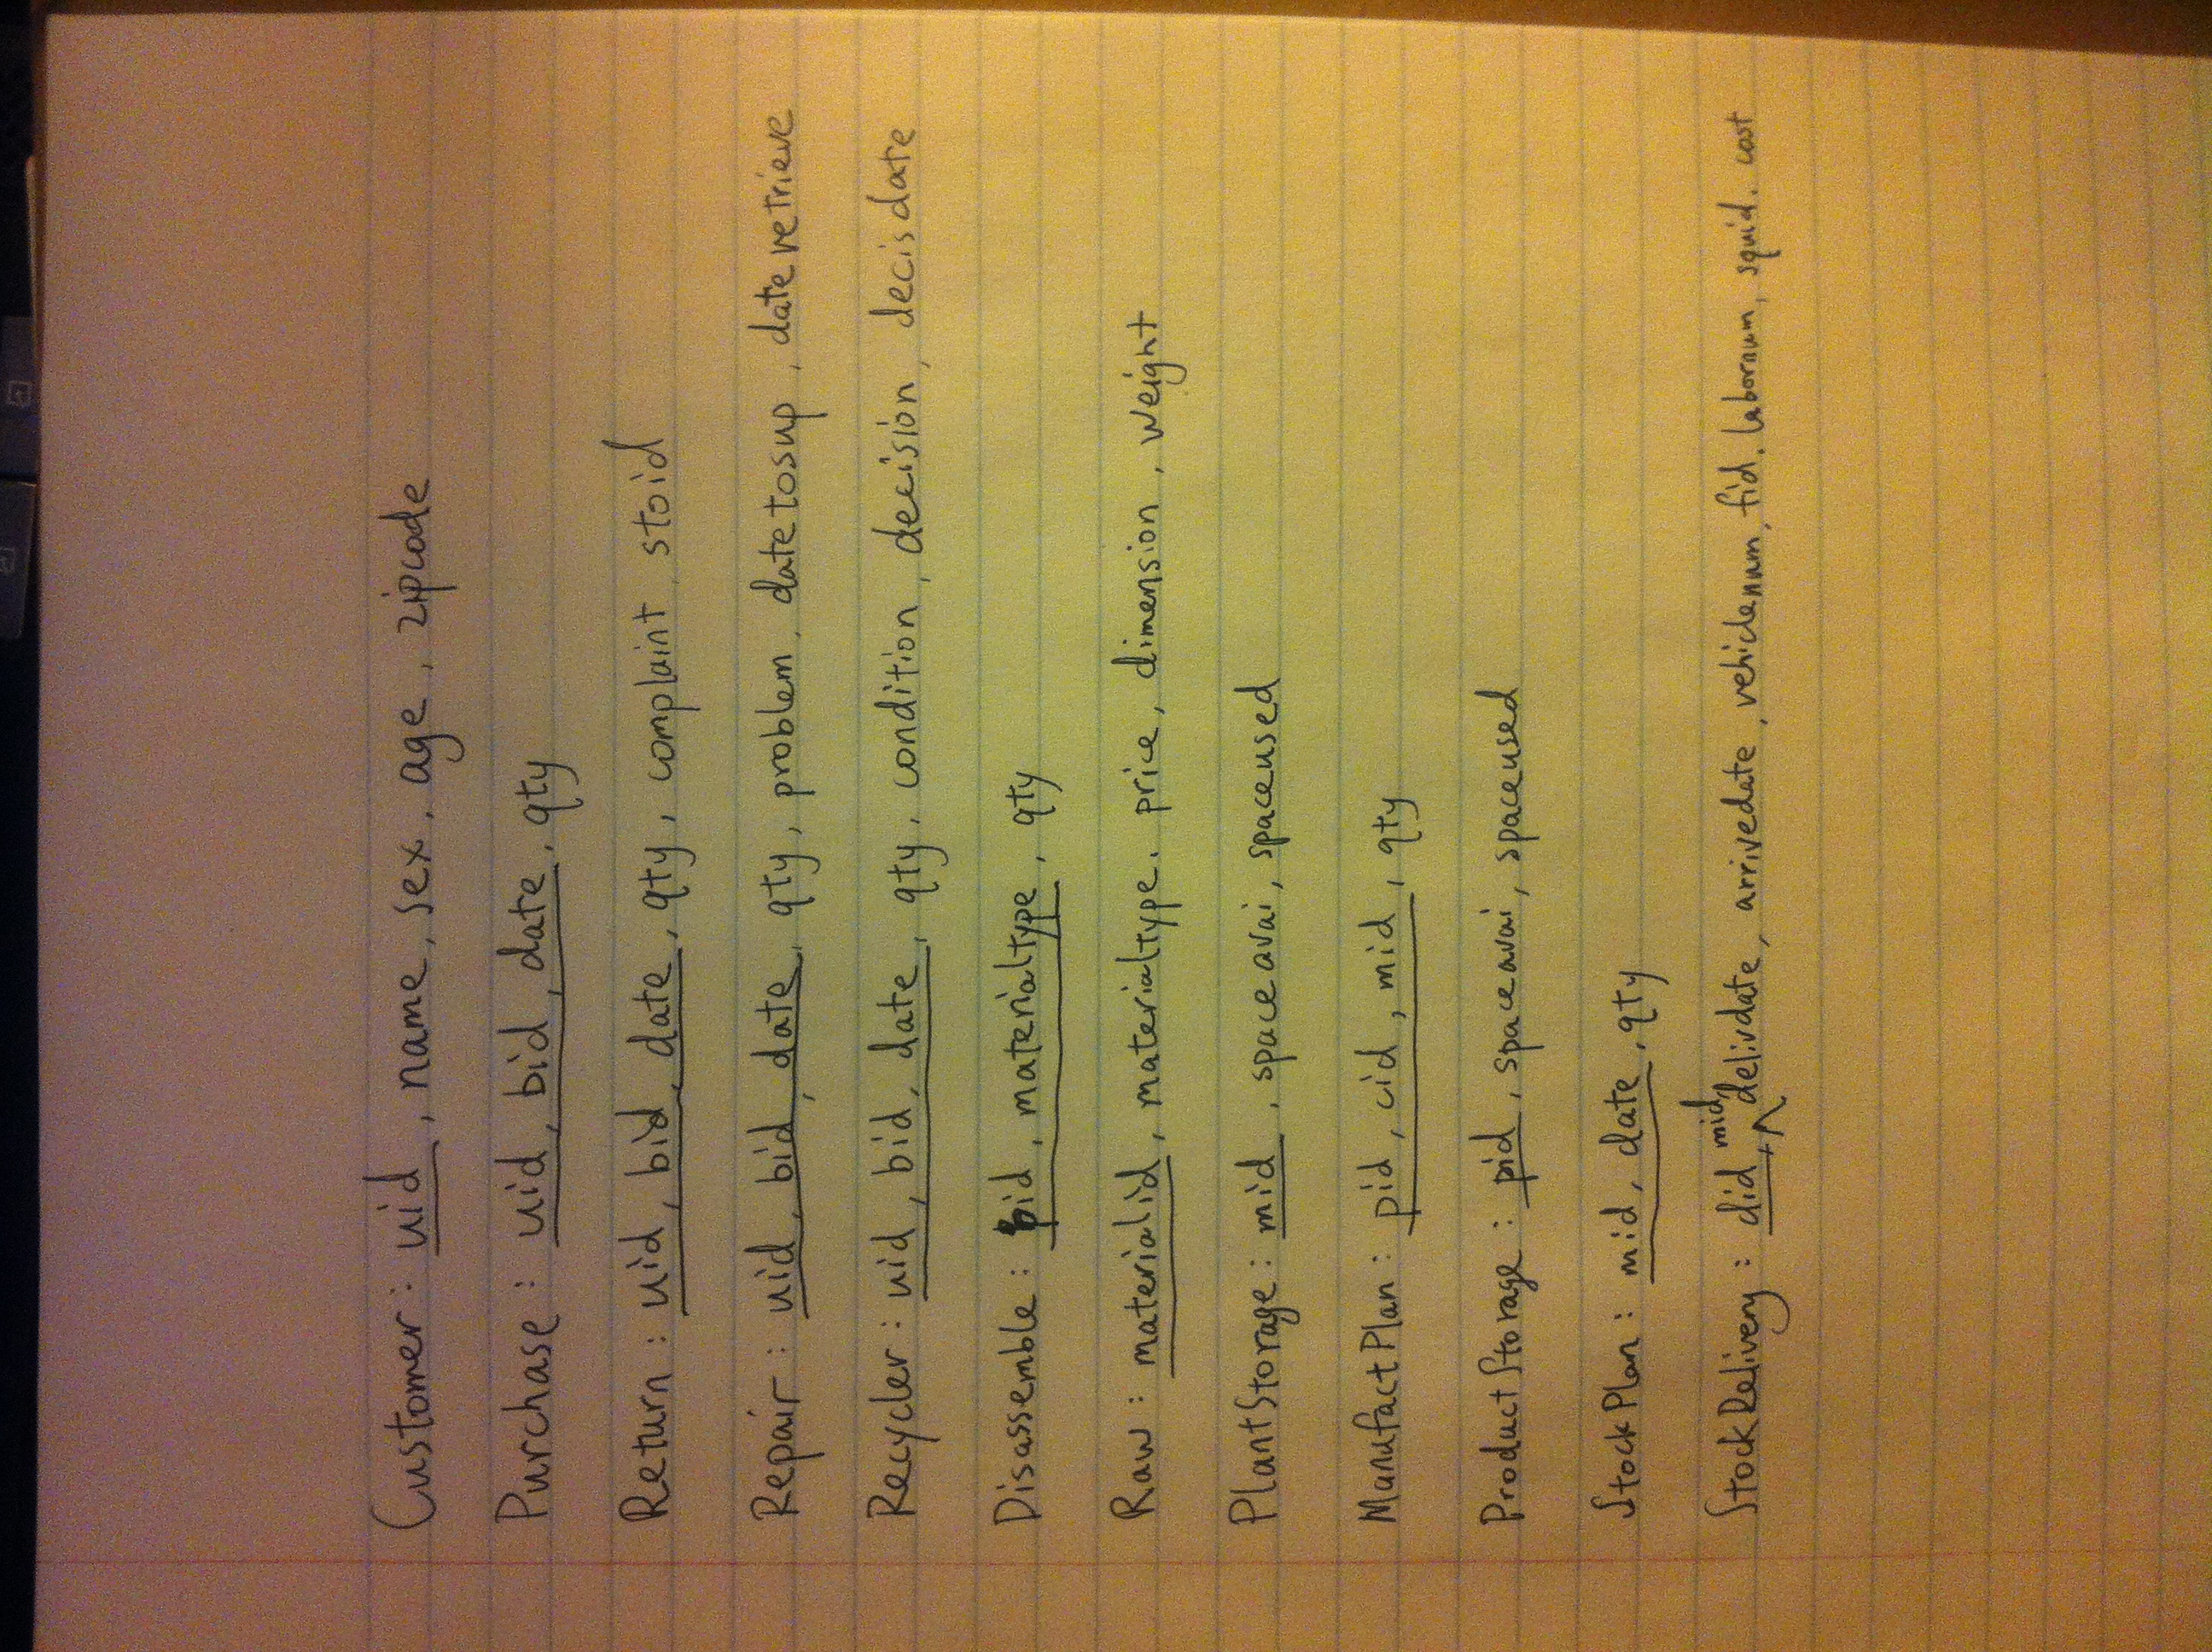 Customer: uid, name, sex, age, zipcode
Purchase: uid, bid, date, qty
Return: uid, bid, date, qty, complaint, stoid
Repair: uid, bid, date, qty, problem, datetosup, dateretrieve
Recycler: uid, bid, date, qty, condition, decision, decisdate
Disassemble: bid, materialtype, qty
Raw: materialid, materialtype, price, dimension, weight
PlantStorage: mid, spaceavai, spaceused
ManufactPlan: pid, cid, mid, qty
ProductStorage: pid, spaceavai, spaceused
StockPlan: mid, date, qty
StockDelivery: did, mid, delivdate, arrivedate, vehiclenum, fid, labornum, squid, cost